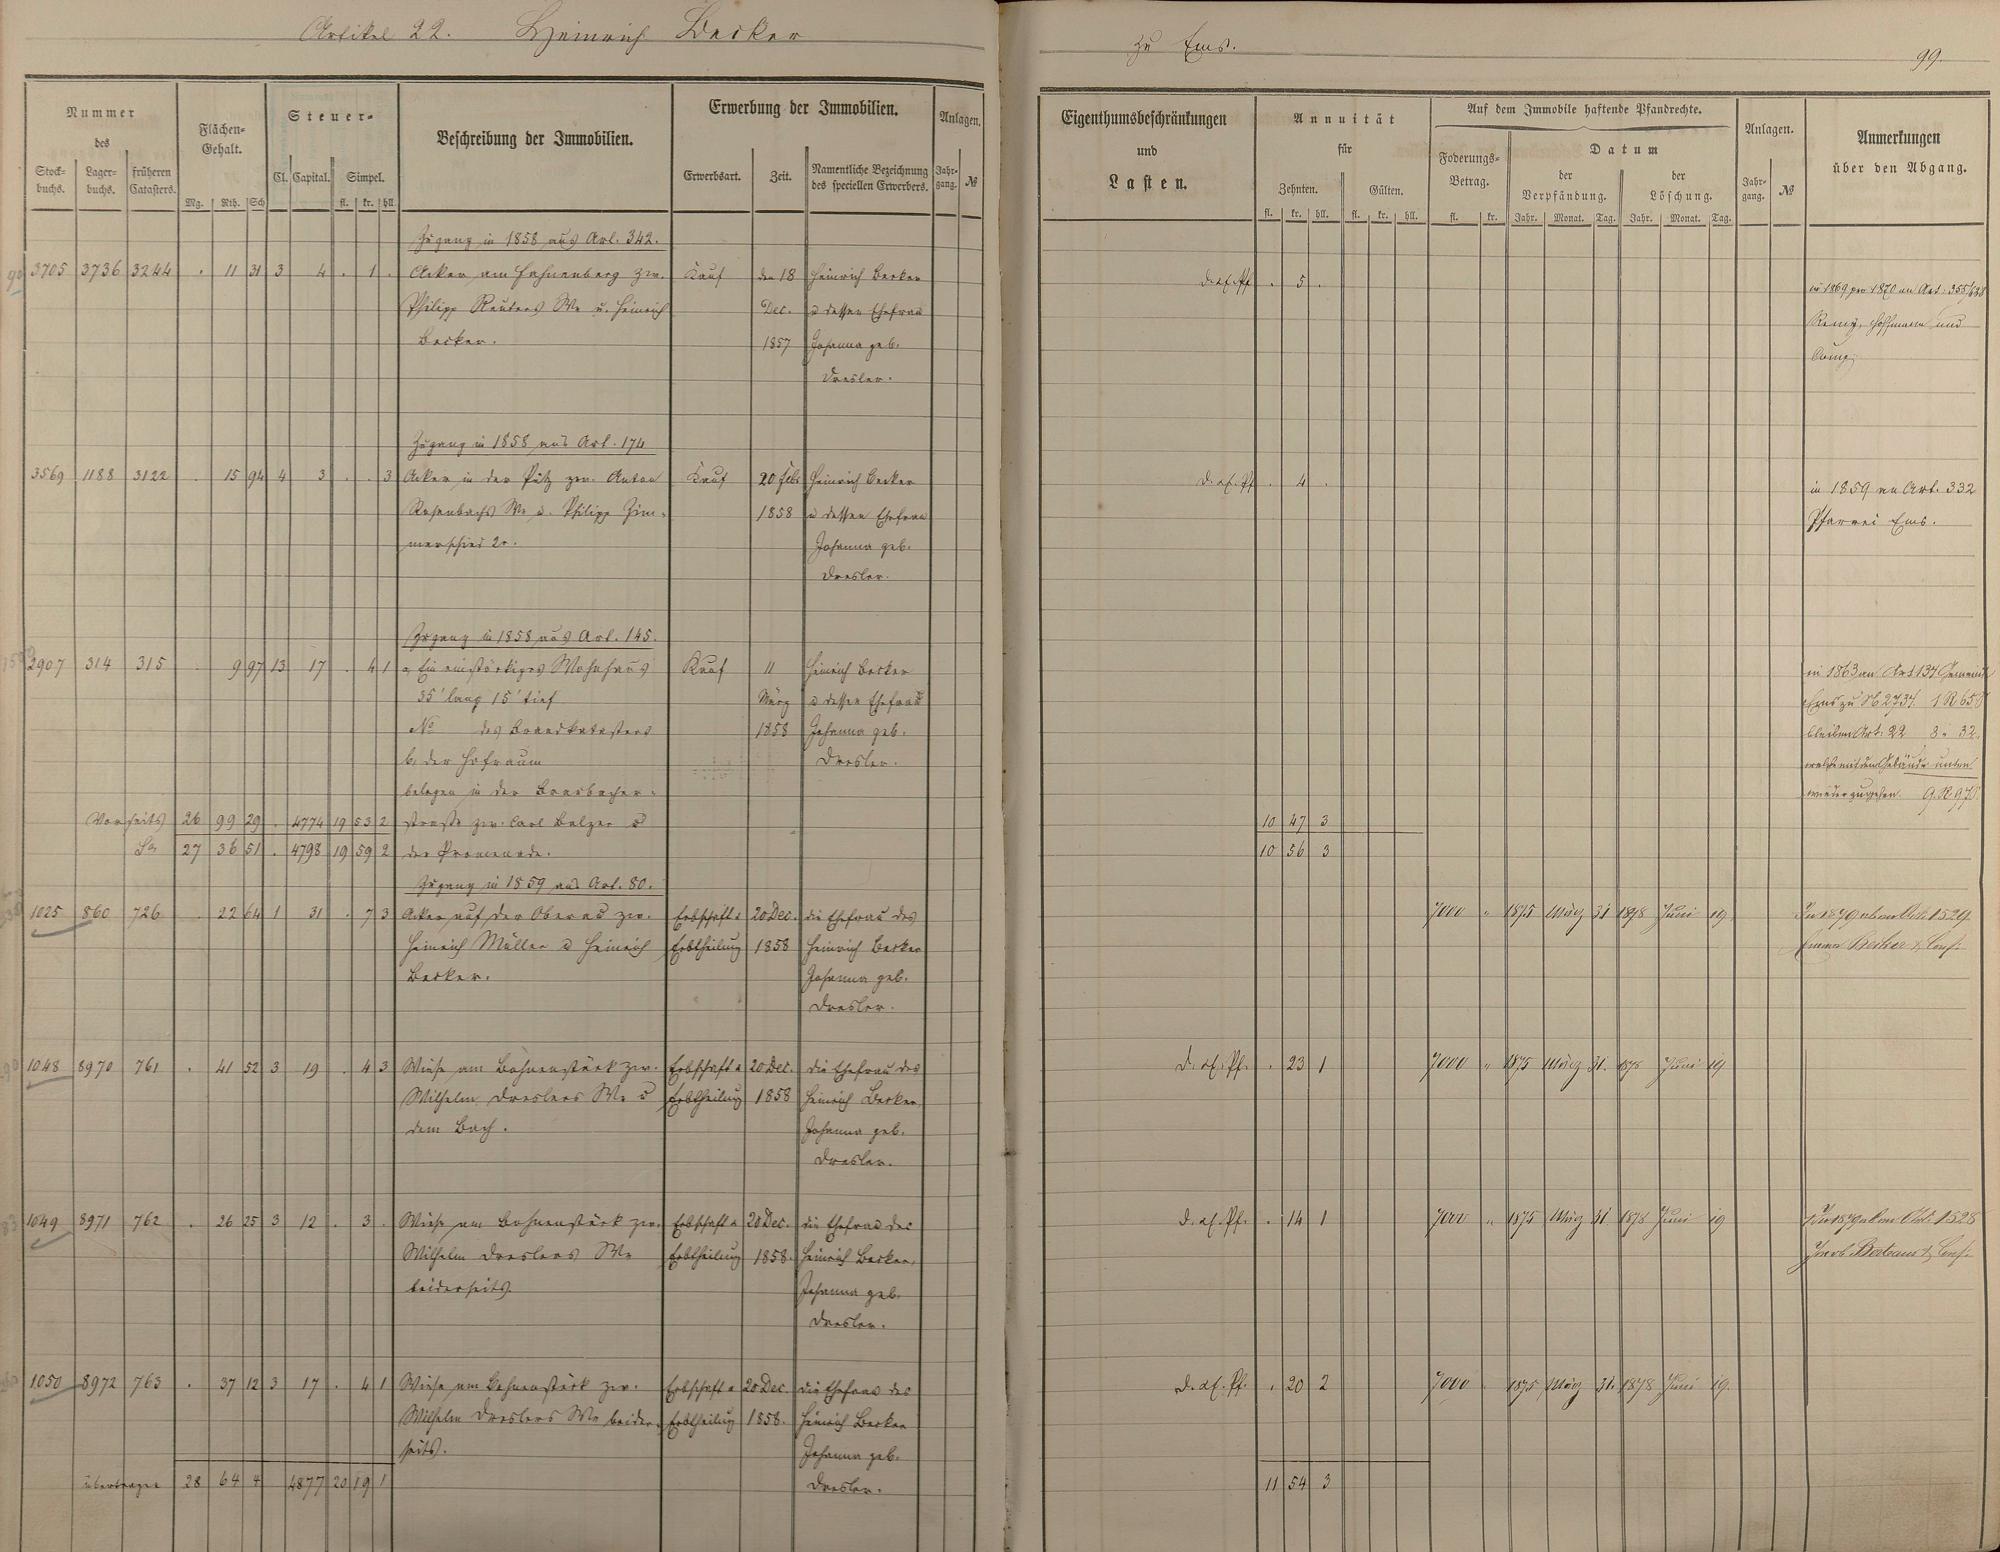 Artikel 22. Heinrich Becker
zu Ems.
99.
Nummer des
Stockbuchs. Lagerbuchs. früheren Catasters.
Flächen-Gehalt.
Mg. Rth. Sch
Steuer-
Cl. Capital. Simpel.
fl. kr. hll.
Beschreibung der Immobilien.
Erwerbung der Immobilien.
Erwerbsart. Zeit. Namentliche Bezeichnung des speciellen Erwerbers.
Anlagen.
Jahrgang. №
Eigenthumsbeschränkungen
und
Lasten.
Annuität
für
Zehnten. Gülten.
fl. kr. hll. fl. kr. hll.
Auf dem Immobile haftende Pfandrechte.
Foderungs-Betrag.
fl. kr.
Datum
der Verpfändung. der Löschung.
Jahr. Monat. Tag. Jahr. Monat. Tag.
Anlagen.
Jahrgang. №
Anmerkungen
über den Abgang.
Zugang in 1858 aus Art. 342.
3705 3736 3244 . 11 31 3 4 . 1 . Acker am Hahnenberg zw. Kauf den 18 Heinrich Becker d. all. Pf. . 5 . in 1869 pro 1870 an Art. 355/638
Philipp Reuters We u. Heinrich Dec. u dessen Ehefrau Remy, Hoffmann und
Becker. 1857 Johanna geb. Comp.
Dresler.
Zugang in 1858 aus Art. 174
3569 1188 3122 . 15 94 4 3 . . 3 Acker in der Pütz zw. Anton Kauf 20 Febr Heinrich Becker d. all. Pf . 4 . in 1859 an Art. 332
Rosenbachs We u. Philipp Zim- 1858 u dessen Ehefrau Pfarrei Ems.
merschied 2r. Johanna geb.
Dresler.
Zugang in 1858 aus Art. 145.
2907 314 315 . 9 97 13 17 . 4 1 a, Ein einstöckiges Wohnhaus Kauf 11 Heinrich Becker in 1863 an Art 134 Gemeinde
35' lang 15' tief März u dessen Ehefrau Ems zu 2737. 1 R 65
No des Brandkatasters 1858 Johanna geb. bleiben Art. 22 8 " 32.
b, der Hofraum Dresler. welche mit dem Gebäude unten
belegen in der Brasbacher- wieder zugehen. 9 R 97
Vorseits 26 99 29 . 4774 19 53 2 strasse zw. Carl Balzer u 10 47 3
Sa 27 36 51 . 4798 19 59 2 der Promenade. 10 56 3
Zugang in 1859 aus Art. 80.
1025 860 726 . 22 64 1 31 . 7 3 Acker auf der Oberau zw. Erbschaft u 20 Dec. die Ehefrau des 7000 " 1875 März 31 1878 Juni 19 In 1879 Art. 1529.
Heinrich Müller u Heinrich Erbtheilung 1858 Heinrich Becker Becker & Cons.
Becker. Johanna geb.
Dresler.
1048 8970 761 . 41 52 3 19 . 4 3 Wiese am Bohnenstück zw. Erbschaft u 20 Dec. die Ehefrau des d. all. Pf. . 23 1 7000 " 1875 März 31. 1878 Juni 19
Wilhelm Dreslers We u Erbtheilung 1858 Heinrich Becker,
dem Bach. Johanna geb.
Dresler.
1049 8971 762 . 26 25 3 12 . 3 . Wiese am Bohnenstück zw. Erbschaft u 20 Dec. die Ehefrau des d. all. Pf. . 14 1 7000 " 1875 März 31 1878 Juni 19 In 1879 Art. 1528
Wilhelm Dreslers We Erbtheilung 1858. Heinrich Becker, Jacob & Cons.
beiderseits. Johanna geb.
Dresler.
1050 8972 763 . 37 12 3 17 . 4 1 Wiese am Bohnenstück zw. Erbschaft u 20 Dec. die Ehefrau des d. all. Pf. . 20 2 7000 " 1875 März 31. 1878 Juni 19.
Wilhelm Dreslers We beider- Erbtheilung 1858. Heinrich Becker
seits. Johanna geb.
übertragen 28 64 4 4877 20 19 1 Dresler. 11 54 3